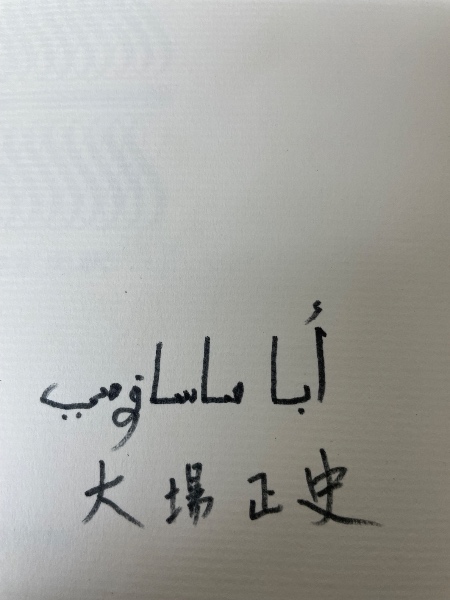 أُبا ماسافومي
大場正史